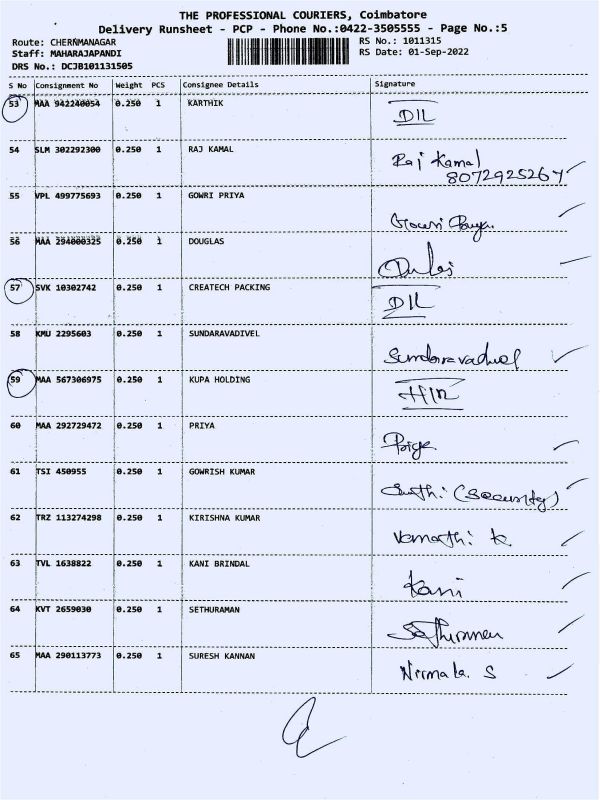 THE PROFESSIONAL COURIERS, Coimbatore
Delivery Runsheet - PCP - Phone No.:0422-3505555 - Page No.:5
Route: CHERNMANAGAR
Staff: MAHARAJAPANDI
DRS No.: DCJB101131505
RS No.: 1011315
RS Date: 01-Sep-2022
S No Consignment No Weight PCS Consignee Details Signature
53 MAA 942240054 0.250 1 KARTHIK DIL
54 SLM 302292300 0.250 1 RAJ KAMAL Raj Kamal
8072925267
55 VPL 499775693 0.250 1 GOWRI PRIYA Gowri Priya
56 MAA 294000325 0.250 1 DOUGLAS
57 SVK 10302742 0.250 1 CREATECH PACKING DIL
58 KMU 2295603 0.250 1 SUNDARAVADIVEL Sundaravadivel
59 MAA 567306975 0.250 1 KUPA HOLDING
60 MAA 292729472 0.250 1 PRIYA Priya
61 TSI 450955 0.250 1 GOWRISH KUMAR (Security)
62 TRZ 113274298 0.250 1 KIRISHNA KUMAR
63 TVL 1638822 0.250 1 KANI BRINDAL Kani
64 KVT 2659030 0.250 1 SETHURAMAN Sethuraman
65 MAA 290113773 0.250 1 SURESH KANNAN Nirmala. S